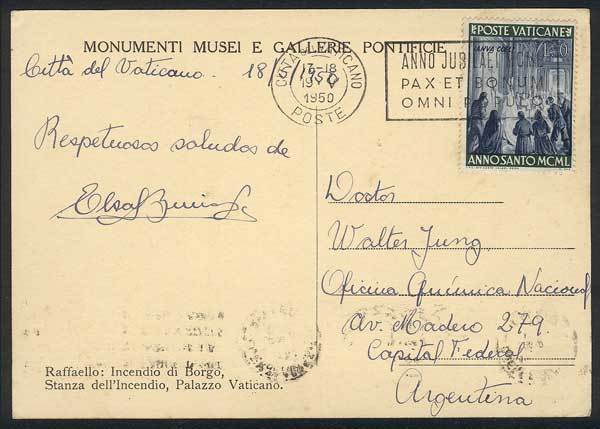 MONUMENTI MUSEI E GALLERIE PONTIFICIE
Città del Vaticano. 18/ /1950
CITTÀ VATICANO
17-18
19 V
1950
POSTE
ANNO JUBILAEI
PAX ET BONUM
OMNI POPULO
POSTE VATICANE
IANVA COELI
ANNO SANTO MCML
Respetuosos saludos de
Elsa
Doctor
Walter Jung.
Oficina Química Nacional
Av. Madero 279.
Capital Federal
Argentina
Raffaello: Incendio di Borgo,
Stanza dell'Incendio, Palazzo Vaticano.